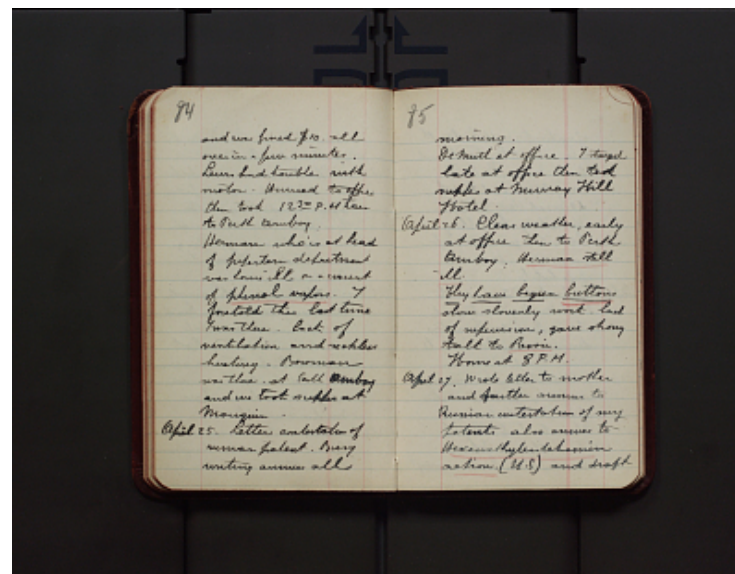 84
and was fined $10. all
over in a few minutes.
Lewis had trouble with
motor. Hurried to office
then took 12 P.M
to Perth Amboy.
Herman who is at head
of department
was home ill on account
of phenol vapors. I
foretold this last time
I was there. Lack of
ventilation and reckless
heating. Bowman
was there. at Perth Amboy
and we took supper at
Mouquin.
April 25. Letter contestation of
patent. Busy
writing answer all
85
morning.
Dr Muth at office I stayed
late at office then took
supper at Murray Hill
Hotel.
April 26. Clear weather, early
at office then to Perth
Amboy. Herman still
ill.
They have begun buttons
show slovenly work. lack
of supervision, gave strong
talk to
Home at 8 P.M.
April 27. Wrote letter to mother
and further answer to
Russian contestation of my
patents also answer to
Hexamethylentetramin
action (U.S) and draft